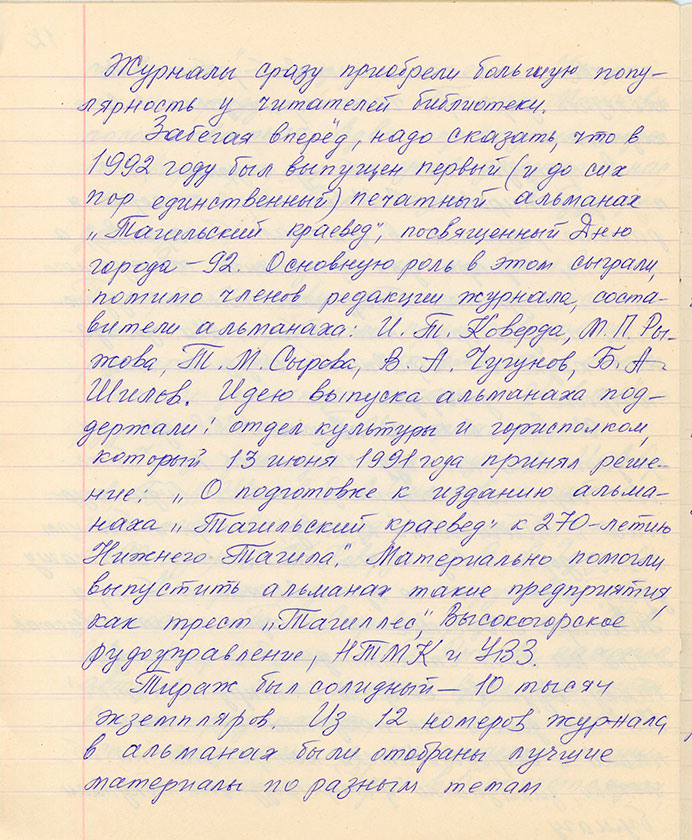 Журналы сразу приобрели большую попу-
лярность у читателей библиотеки.
Забегая вперёд, надо сказать, что в
1992 году был выпущен первый (и до сих
пор единственный) печатный альманах
„Тагильский краевед“, посвященный Дню
города – 92. Основную роль в этом сыграли,
помимо членов редакции журнала, соста-
вители альманаха: И. Т. Коверда, М. П. Ры-
жова, Т. М. Сырова, В. А. Чугунов, Б. А.
Шилов. Идею выпуска альманаха под-
держали: отдел культуры и горисполком,
который 13 июня 1991 года принял реше-
ние: „О подготовке к изданию альма-
наха „Тагильский краевед“ к 270-летию
Нижнего Тагила“. Материально помогли
выпустить альманах такие предприятия,
как трест „Тагиллес“, Высокогорское
рудоуправление, НТМК и УВЗ.
Тираж был солидный – 10 тысяч
экземпляров. Из 12 номеров журнала
в альманах были отобраны лучшие
материалы по разным темам.